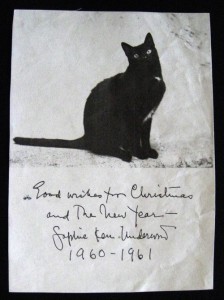 Good wishes for Christmas
and The New Year –
Sophie Underwood
1960-1961